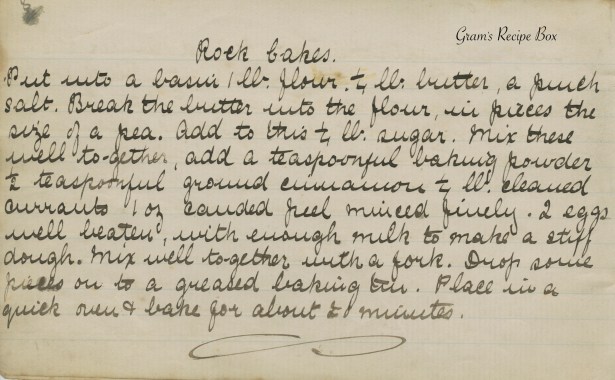 Gram's Recipe Box
Rock Cakes.
Put into a basin 1 lb. flour. ¼ lb. butter, a pinch
salt. Break the butter into the flour, in pieces the
size of a pea. Add to this ¼ lb. sugar. Mix these
well to-gether, add a teaspoonful baking powder
½ teaspoonful ground cinnamon ¼ lb. cleaned
currants 1 oz candied peel minced finely. 2 eggs
well beaten, with enough milk to make a stiff
dough. Mix well together with a fork. Drop some
pieces on to a greased baking tin. Place in a
quick oven & bake for about minutes.